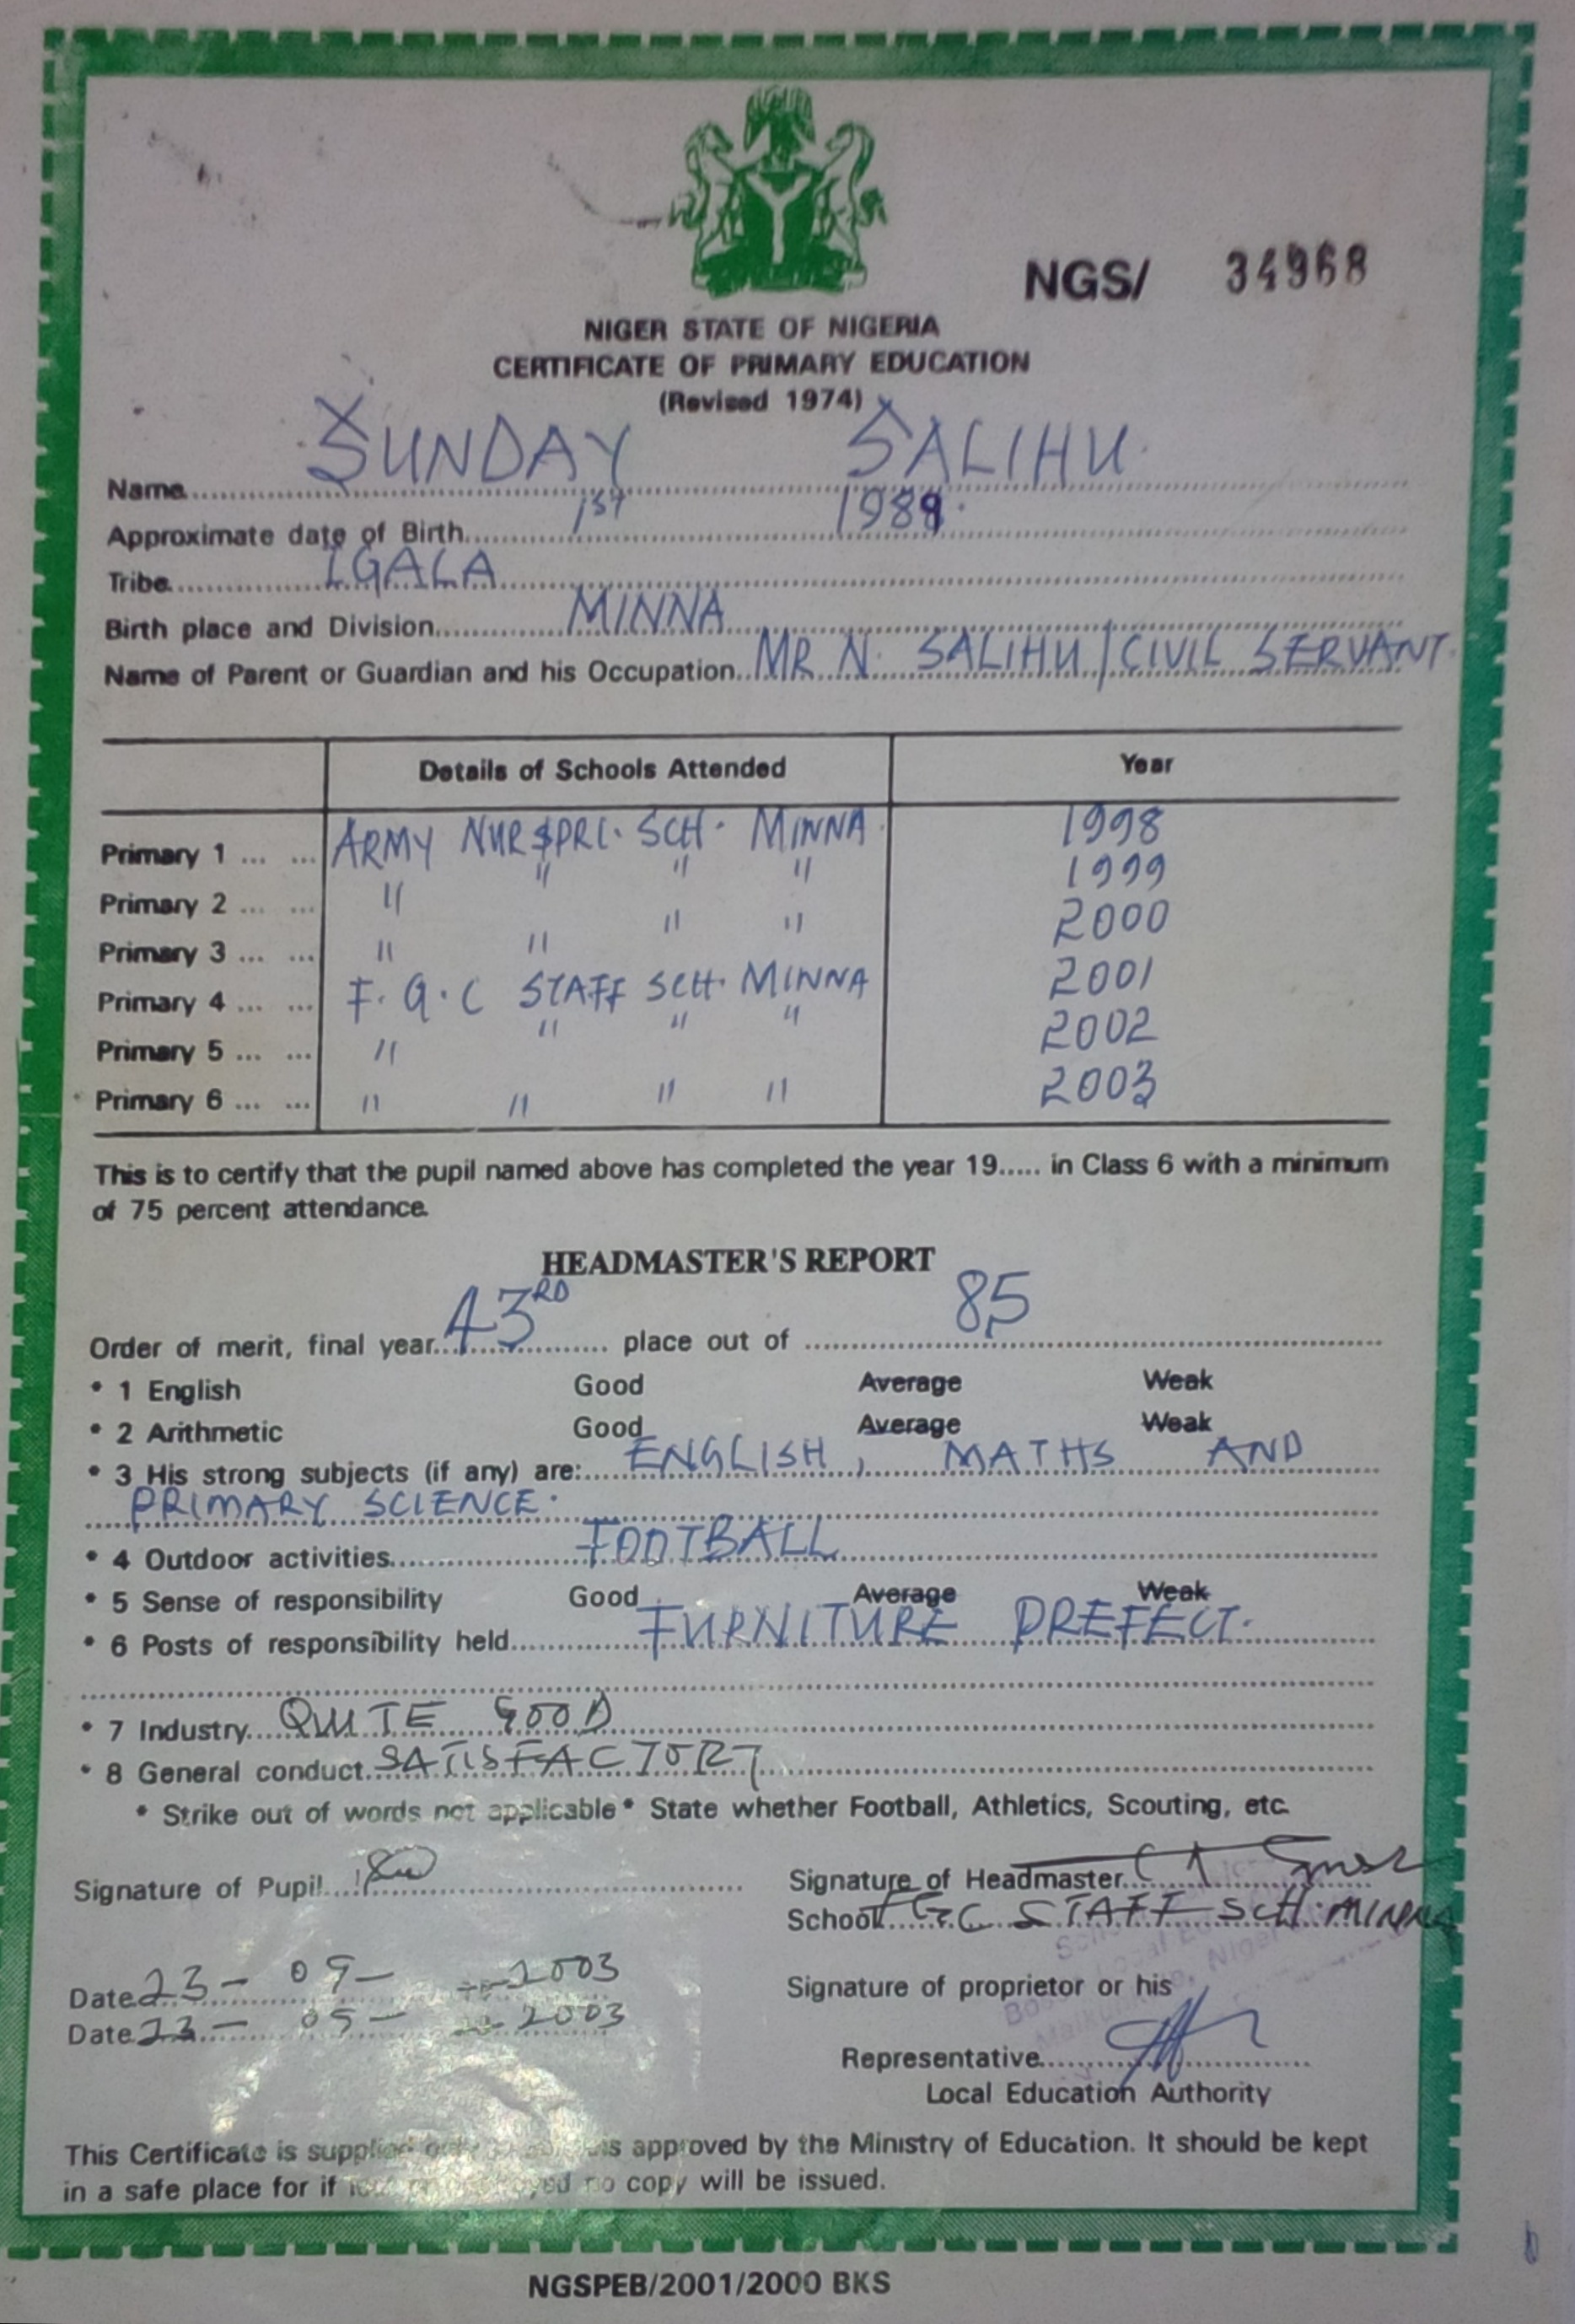 NGS/ 34968
NIGER STATE OF NIGERIA
CERTIFICATE OF PRIMARY EDUCATION
(Revised 1974)
Name SUNDAY SALIHU.
Approximate date of Birth 1st 1989.
Tribe IGALA
Birth place and Division MINNA
Name of Parent or Guardian and his Occupation MR N. SALIHU / CIVIL SERVANT.
Details of Schools Attended Year
Primary 1 ... ... ARMY NUR $ PRI. SCH. MINNA 1998
Primary 2 ... ... " " " " 1999
Primary 3 ... ... " " " " 2000
Primary 4 ... ... F.G.C STAFF SCH. MINNA 2001
Primary 5 ... ... " " " " 2002
Primary 6 ... ... " " " " 2003
This is to certify that the pupil named above has completed the year 19..... in Class 6 with a minimum
of 75 percent attendance.
HEADMASTER'S REPORT
Order of merit, final year 43RD place out of 85
* 1 English Good Average Weak
* 2 Arithmetic Good Average Weak
* 3 His strong subjects (if any) are: ENGLISH, MATHS AND
PRIMARY SCIENCE.
* 4 Outdoor activities FOOTBALL
* 5 Sense of responsibility Good Average Weak
* 6 Posts of responsibility held FURNITURE PREFECT.
* 7 Industry QUITE GOOD
* 8 General conduct SATISFACTORY
* Strike out of words not applicable * State whether Football, Athletics, Scouting, etc.
Signature of Pupil
Signature of Headmaster
School FGC STAFF SCH. MINNA
Date 23 - 09 - 2003
Signature of proprietor or his
Date 23 - 09 - 2003
Representative
Local Education Authority
This Certificate is supplied approved by the Ministry of Education. It should be kept
in a safe place for if no copy will be issued.
NGSPEB/2001/2000 BKS